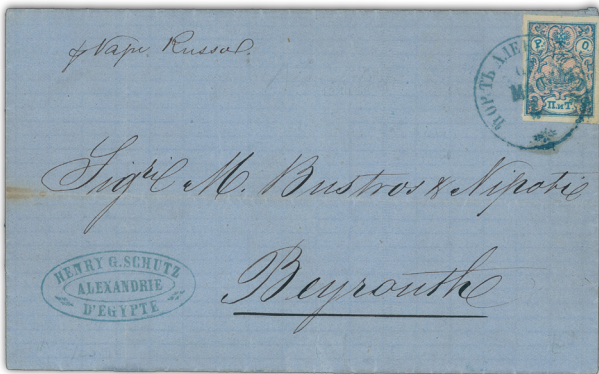 p Vap. Russo.
Р. О
П. и Т.
ПОРТЪ АЛЕ
Sigri M. Bustros & Nipoti
Beyrouth
HENRY G. SCHUTZ
ALEXANDRIE
D'EGYPTE